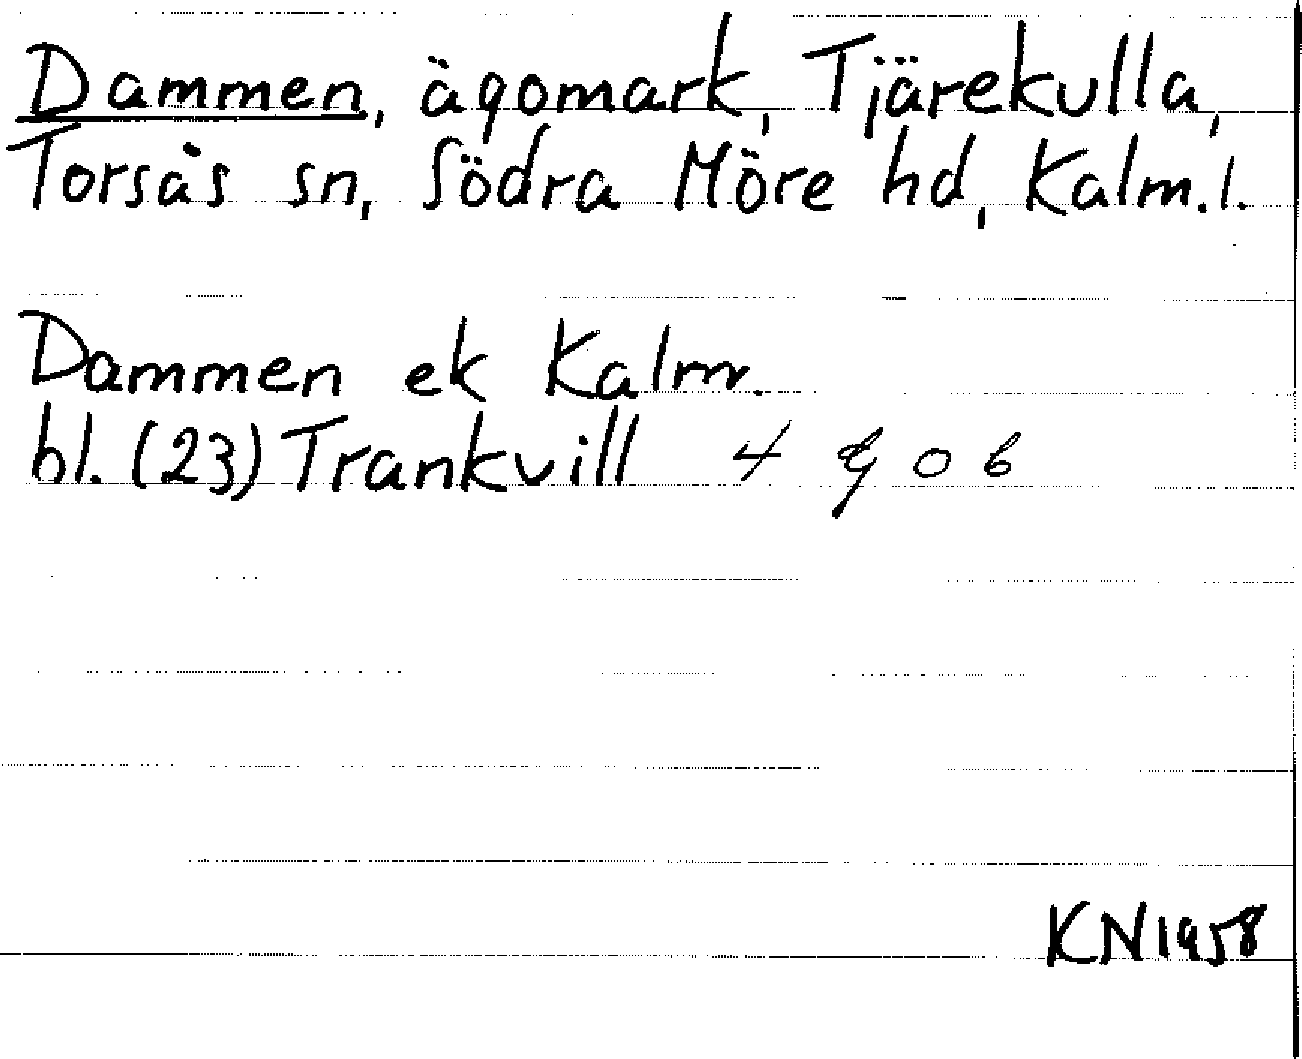 Dammen, ägomark, Tjärekulla,
Torsås sn, Södra Möre hd, Kalm.l.
Dammen ek Kalm.
bl. (23) Trankvill 4 g 0 6
KN1958